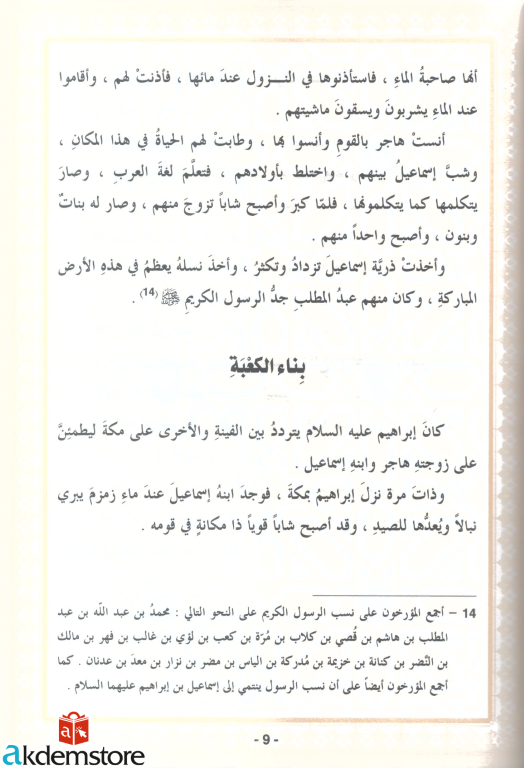 أنها صاحبةُ الماءِ ، فاستأذنوها في النـــزول عندَ مائها ، فأذنتْ لهم ، وأقاموا
عند الماءِ يشربونَ ويسقونَ ماشيتهم .
أنستْ هاجر بالقومِ وأنسوا بها ، وطابتْ لهم الحياةُ في هذا المكانِ ،
وشبَّ إسماعيلُ بينهم ، واختلط بأولادهم ، فتعلَّمَ لغةَ العربِ ، وصارَ
يتكلمها كما يتكلمونها ، فلمّا كبرَ وأصبح شاباً تزوجَ منهم ، وصار له بناتٌ
وبنون ، وأصبح واحداً منهم .
وأخذتْ ذريَّة إسماعيلَ تزدادُ وتكثرُ ، وأخذَ نسلهُ يعظمُ في هذهِ الأرض
المباركةِ ، وكان منهم عبدُ المطلب جدُّ الرسول الكريمِ ﷺ (14) .
بِناء الكَعْبَةِ
كانَ إبراهيم عليه السلام يترددُ بين الفينةِ والأخرى على مكةَ ليطمئِنَّ
على زوجتهِ هاجر وابنهِ إسماعيل .
وذاتَ مرة نزلَ إبراهيمُ بمكةَ ، فوجدَ ابنهُ إسماعيلَ عندَ ماءِ زمزمَ يبري
نبالاً ويُعدُّها للصيدِ ، وقد أصبح شاباً قوياً ذا مكانةٍ في قومه .
14 – أجمع المؤرخون على نسب الرسول الكريم على النحو التالي : محمدُ بن عبد اللّه بن عبد
المطلب بن هاشم بن قُصي بن كلاب بن مُرّة بن كعب بن لؤي بن غالب بن فهر بن مالك
بن النَّضر بن كنانة بن خزيمة بن مُدركة بن الياس بن مضر بن نزار بن معدَ بن عدنان . كما
أجمع المؤرخون أيضاً على أن نسب الرسول ينتمي إلى إسماعيل بن إبراهيم عليهما السلام .
- 9 -
a
akdemstore